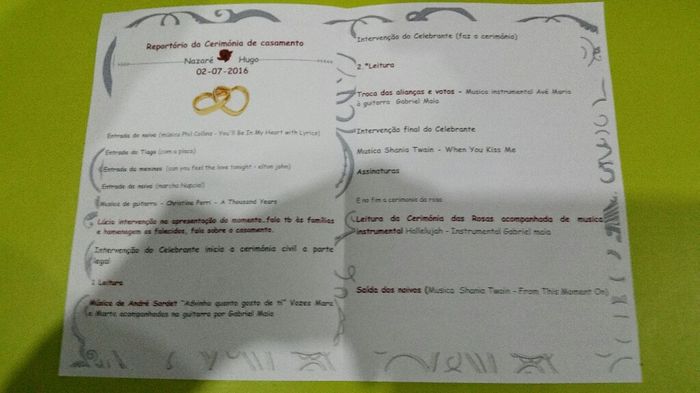 Repertório da Cerimónia de casamento
Nazaré Hugo
02-07-2016
Entrada do noivo (música Phil Collins - You'll Be In My Heart with Lyrics)
Entrada do Tiago (com a placa)
Entrada da meninas (can you feel the love tonight - elton john)
Entrada da noiva (marcha Nupcial)
Musica de guitarra - Christina Perri - A Thousand Years
Lúcia intervenção na apresentação do momento..fala tb às famílias
e homenagem os falecidos, fala sobre o casamento.
Intervenção do Celebrante inicia a cerimónia civil a parte
legal
Leitura
Música de André Sardet "Adivinha quanto gosto de ti" Vozes Mara
e Marta acompanhadas na guitarra por Gabriel Maia
Intervenção do Celebrante (faz a cerimónia)
2 ªLeitura
Troca das alianças e votos - Musica instrumental Avé Maria
à guitarra Gabriel Maia
Intervenção final do Celebrante
Musica Shania Twain - When You Kiss Me
Assinaturas
E no fim a cerimonia da rosa
Leitura da Cerimónia das Rosas acompanhada de musica
instrumental Hallelujah - Instrumental Gabriel maia
Saída dos noivos (Musica Shania Twain - From This Moment On)